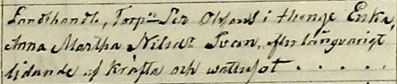 Landthandl, Torp:n Per Olsons i thenge Enka,
Anna Martha Nilsdr Svan, efter långvarigt
lidande af kräfta och wattusot . . . . .